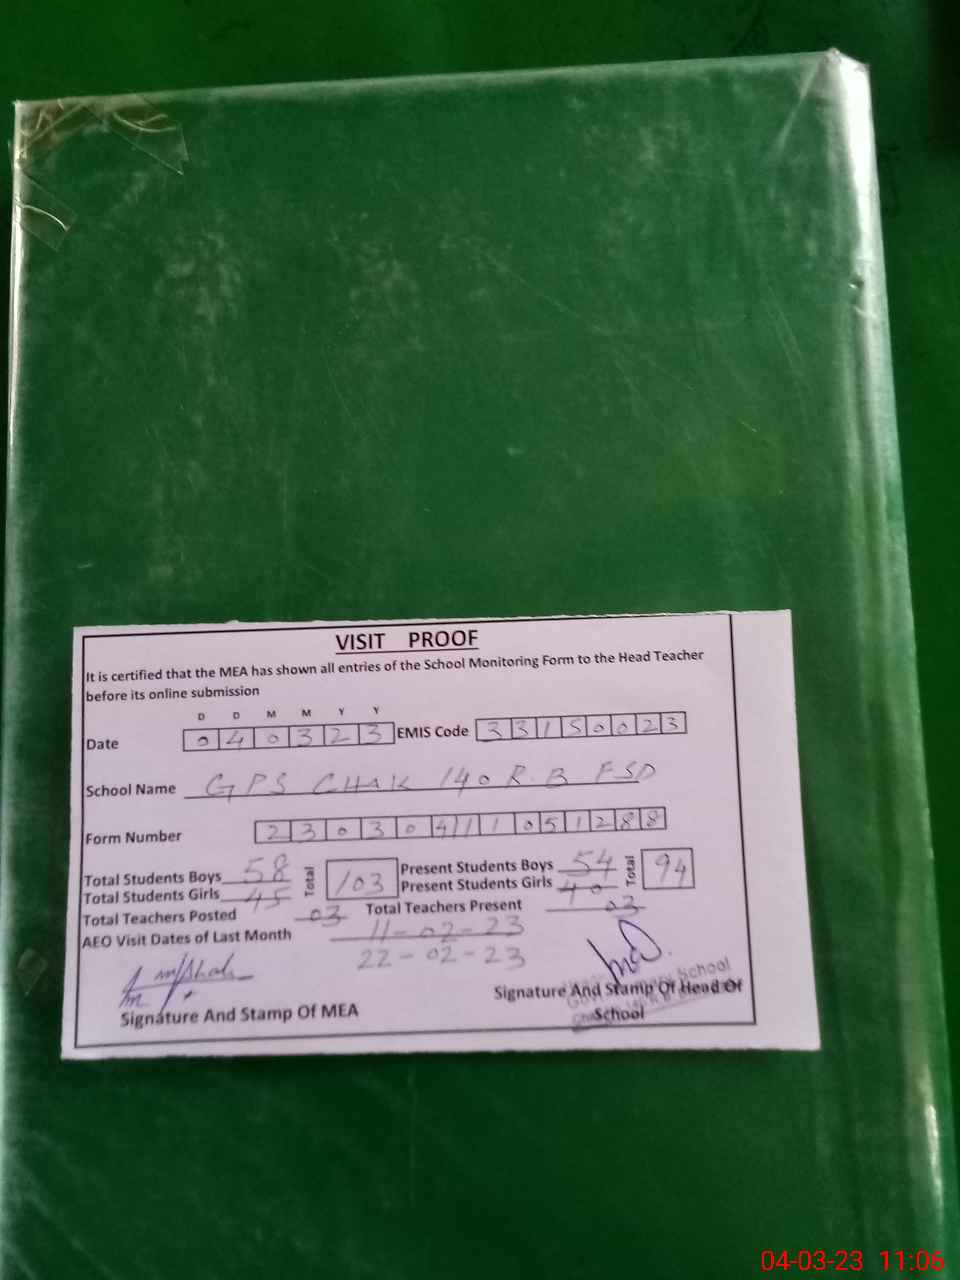 VISIT PROOF
It is certified that the MEA has shown all entries of the School Monitoring Form to the Head Teacher
before its online submission
D D M M Y Y
Date 0 4 0 3 2 3 EMIS Code 3 3 1 5 0 0 2 3
School Name GPS CHAK 140 R.B FSD
Form Number 2 3 0 3 0 4 1 1 0 5 1 2 8 8
Total Students Boys 58 Total 103 Present Students Boys 54 Total 94
Total Students Girls 45 Present Students Girls 40
Total Teachers Posted 03 Total Teachers Present 03
AEO Visit Dates of Last Month 11-02-23
22-02-23
School
Signature And Stamp Of MEA Signature And Stamp Of Head Of
School
04-03-23 11:06